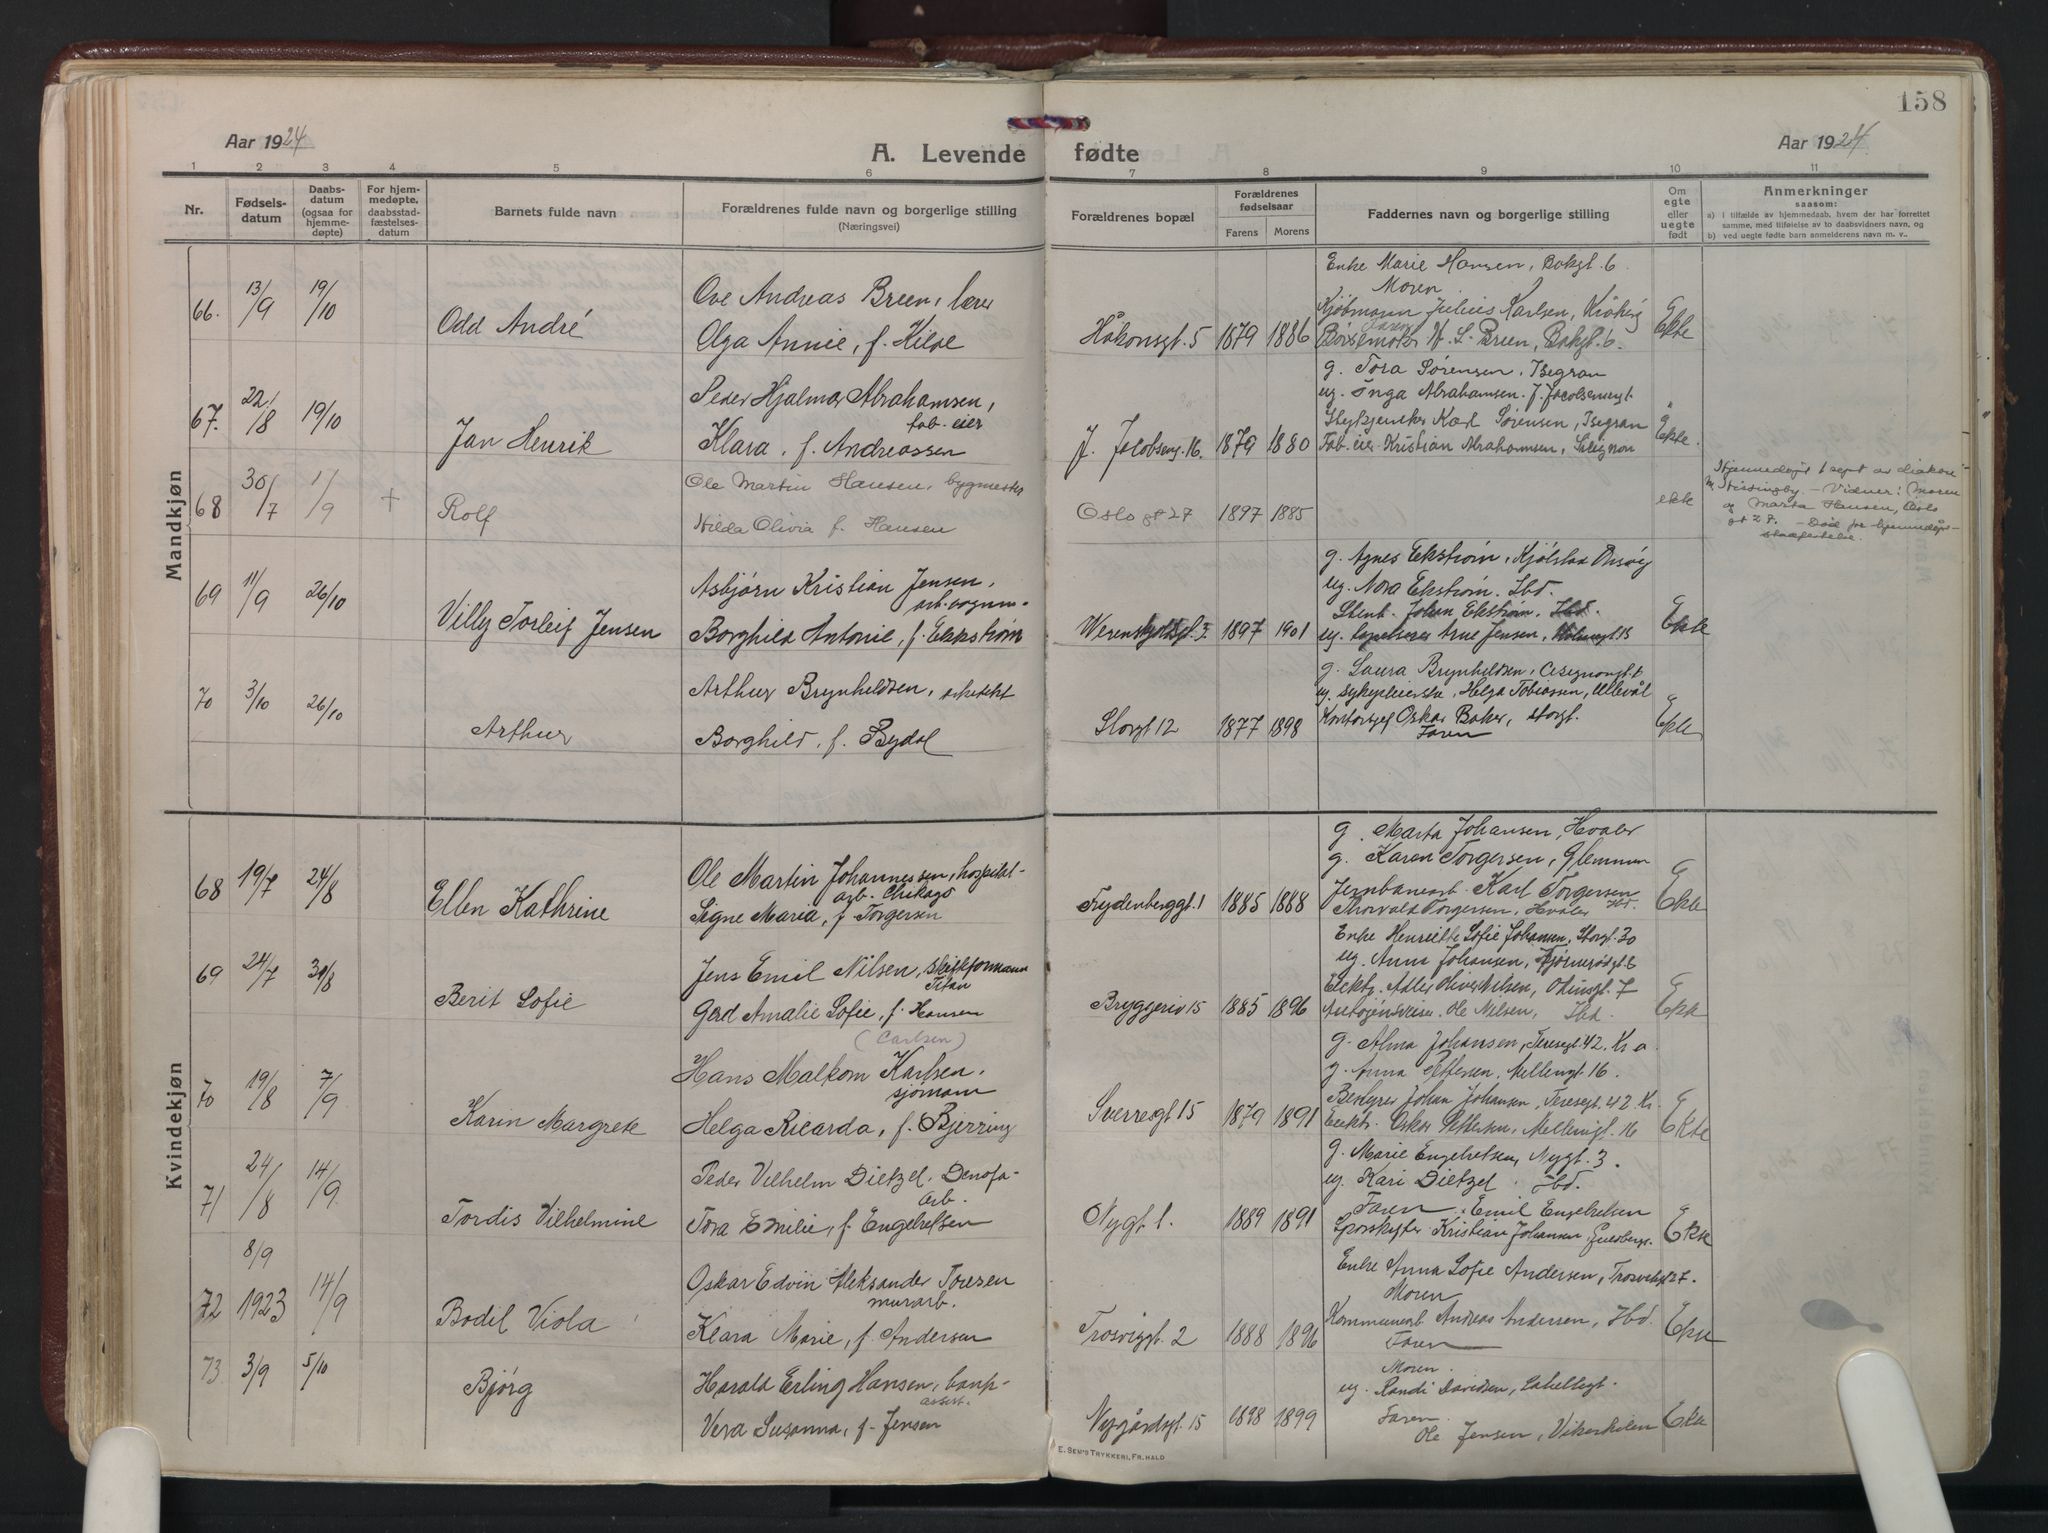 158
Aar 1924
A. Levende fødte
Aar 1924
1 2 3 4 5 6 7 8 9 10 11
Nr.
Fødsels-
datum
Daabs-
datum
(ogsaa for
hjemme-
døpte)
For hjem-
medøpte,
daabsstad-
fæstelses-
datum
Barnets fulde navn
Forældrenes fulde navn og borgerlige stilling
(Næringsvei)
Forældrenes bopæl
Forældrenes
fødselsaar
Farens Morens
Faddernes navn og borgerlige stilling
Om
egte
eller
uegte
født
Anmerkninger
saasom:
a) i tilfælde av hjemmedaab, hvem der har forrettet
samme, med tilføielse av to daabsvidners navn, og
b) ved uegte fødte barn anmelderens navn m. v..
Mandkjøn
66. 13/9 19/10
Odd André
Ove Andreas Breen, lærer
Olga Annie, f. Kilde
Håkonsgt. 5 1879 1886
Enke Marie Hansen, Bakgt. 6
Moren.
Kjøbmann Julius Karlsen, Kråkerø
Faren
W. S. Breen, Bakgt. 6.
Ekte
67. 22/8 19/10
Jan Henrik
Peder Hjalmar Abrahamsen,
fab. eier
Klara, f. Andreassen
J. Jacobseng. 16. 1879 1880
g. Tora Sørensen, Isegran
ug. Inga Abrahamsen. J. Jacobsensgt
Karl Sørensen, Isegran
Fab. eier Kristian Abrahamsen,
Ekte.
68 30/7 1/9 +
Rolf
Ole Martin Hansen, bygmester
Hilda Olivia f. Hansen
Oslo gt 27 1897 1885
ekte
Hjemmedøpt 1 sept av diakon
Vidner: Moren
og Marta Hansen, Oslo
gt 27. – Død før hjemmedåps-
stadfestelse.
69 11/9 26/10
Villy Torleif Jensen
Asbjørn Kristian Jensen,
Borghild Antonie, f. Ekstrøm
Werenskjoldsgt. 3. 1897 1901
g. Agnes Ekstrøm, Kjølstad Onsøy
ug. Nora Ekstrøm. Ibd.
Stenh. Johan Ekstrøm. Ibd.
ug. Arne Jensen,
Ekte
70 3/10 26/10
Arthur
Arthur Brynhildsen, arkitekt
Borghild, f. Bydal
Storgt 12 1877 1898
g. Laura Brynhildsen,
ug. sykepleierske, Helga Tobiassen, Ullevål
Kontorsjef Oskar Baker, Storgt.
Faren
Ekte
Kvindekjøn
68 19/7 24/8
Ellen Kathrine
Ole Martin Johannessen, hospital-
arb. Chikago
Signe Maria, f. Torgersen
Frydenberggt. 1 1885 1888
g. Marta Johansen, Hvaler
g. Karen Torgersen, Glemmen
Jernbanearb. Karl Torgersen
Ibd.
Thorvald Torgersen, Hvaler
Ekte
69 24/7 31/8
Berit Sofie
Jens Emil Nilsen, skiftformann
Titan
Gerd Amalie Sofie, f. Hansen
Bryggeriv 15 1885 1896
Enke Henriette Sofie Johansen, Storgt. 30
ug. Anna Johansen,
Elektr. Adler Oliver Nilsen, Odinsgt. 7
Ole Nilsen, Ibd.
Ekte
70 19/8 7/9
Karin Margrete
(Carlsen)
Hans Malkom Karlsen,
sjømann
Helga Ricarda, f. Bjerring
Sverresgt 15 1879 1891
g. Alma Johansen, Teresegt. 42. Kr a
g. Anna Pettersen, Mellemgt 16.
Bestyrer Johan Johansen, Teresegt. 42 Kr.
Elektr. Oskar Pettersen, Mellemgt. 16
Ekte
71 24/8 14/9
Tordis Vilhelmine
Peder Vilhelm Dietzel. Denofa-
arb.
Tora Emilie, f. Engebretsen
Nygt 1. 1889 1891
g. Marie Engebretsen, Nygt. 3.
ug. Kari Dietzel. Ibd.
Faren. Emil Engebretsen
Sporskifter Kristian Johansen,
Ekte
72 8/9 1923 14/9
Bodil Viola
Oskar Edvin Aleksander Toresen
murarb.
Klara Marie, f. Andersen
Trosviggt. 2 1888 1896
Enke Anna Sofie Andersen, Trosvikgt 27.
Moren
Kommunearb Andreas Andersen, Ibd.
Faren
Ekte
73 3/9 5/10
Bjørg
Harald Erling Hansen, bank-
assist.
Vera Susanna, f. Jensen
Nygårdsgt. 15 1898 1899
Moren.
ug. Randi Davidsen,
Faren.
Ole Jensen, Vikerkilen
Ekte
E. SEM'S TRYKKERI, FR.HALD